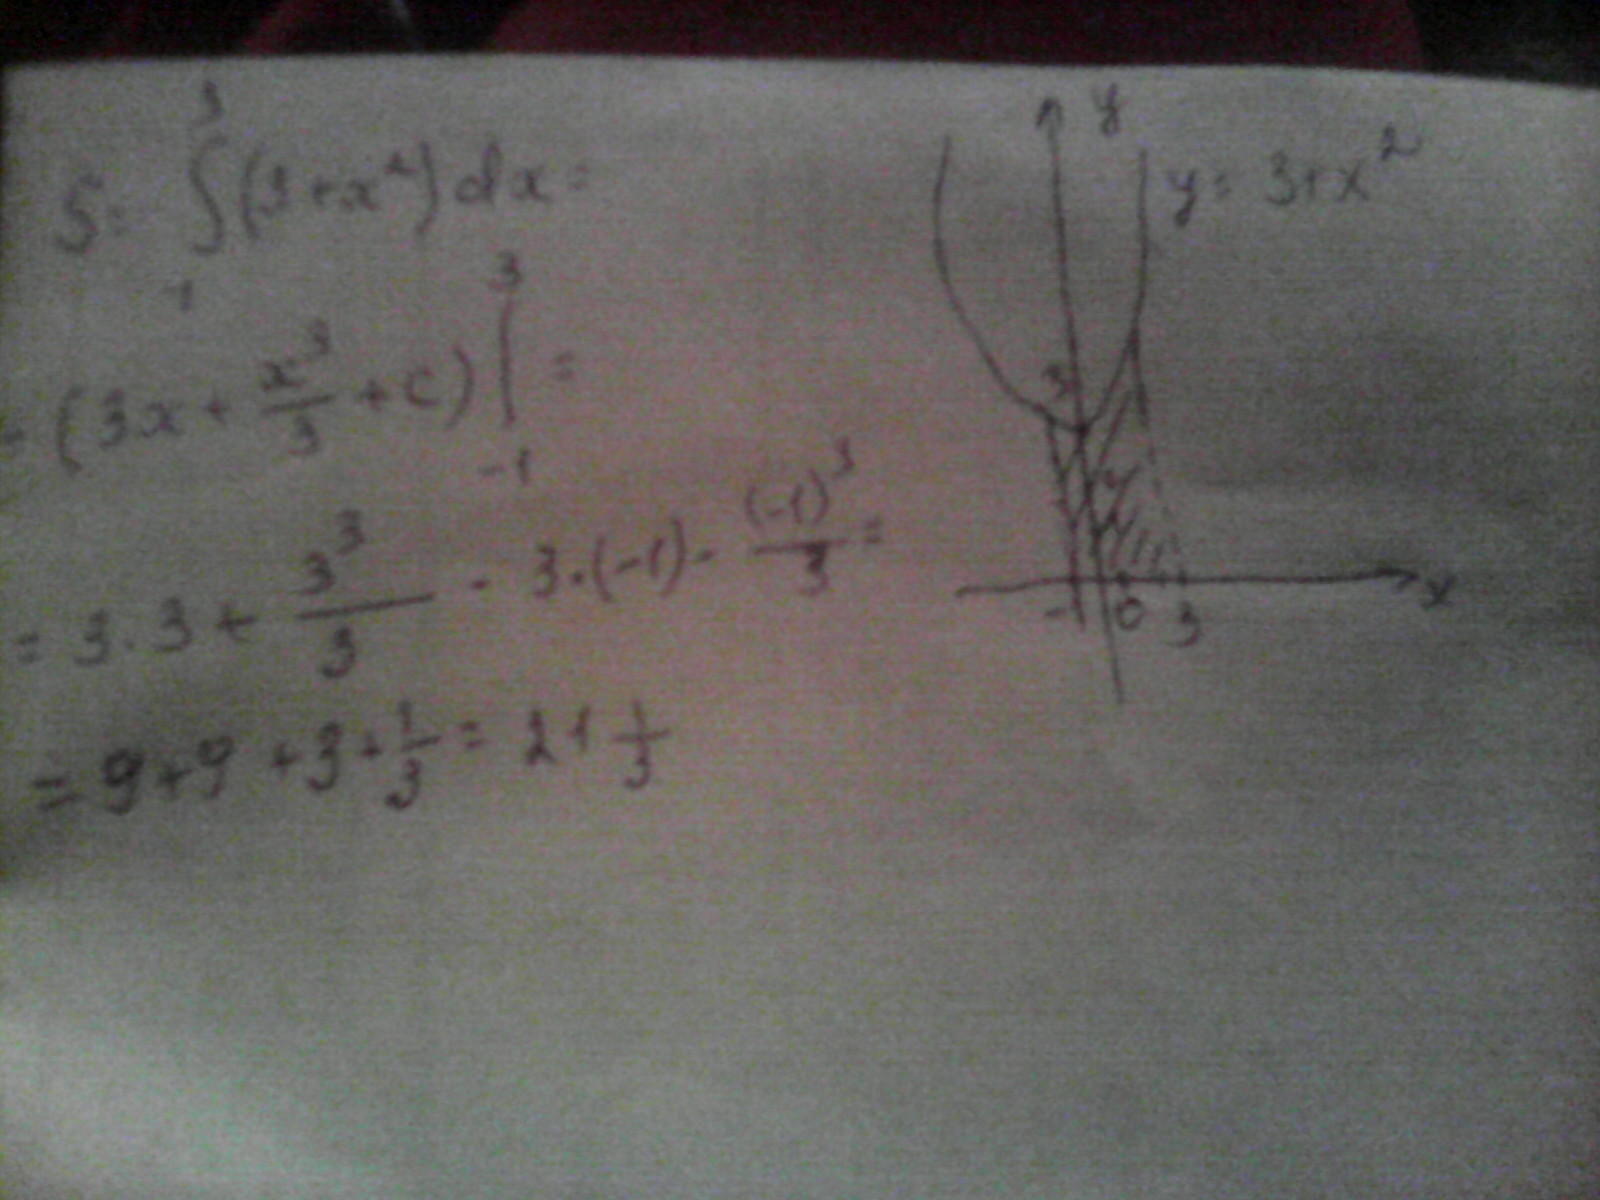 S = ∫₋₁³ (3+x²)dx =
= (3x + x³/3 + c) |₋₁³ =
= 3·3 + 3³/3 - 3·(-1) - (-1)³/3 =
= 9+9+3+1/3 = 21 1/3
y
y = 3+x²
3
-1 0 3 x